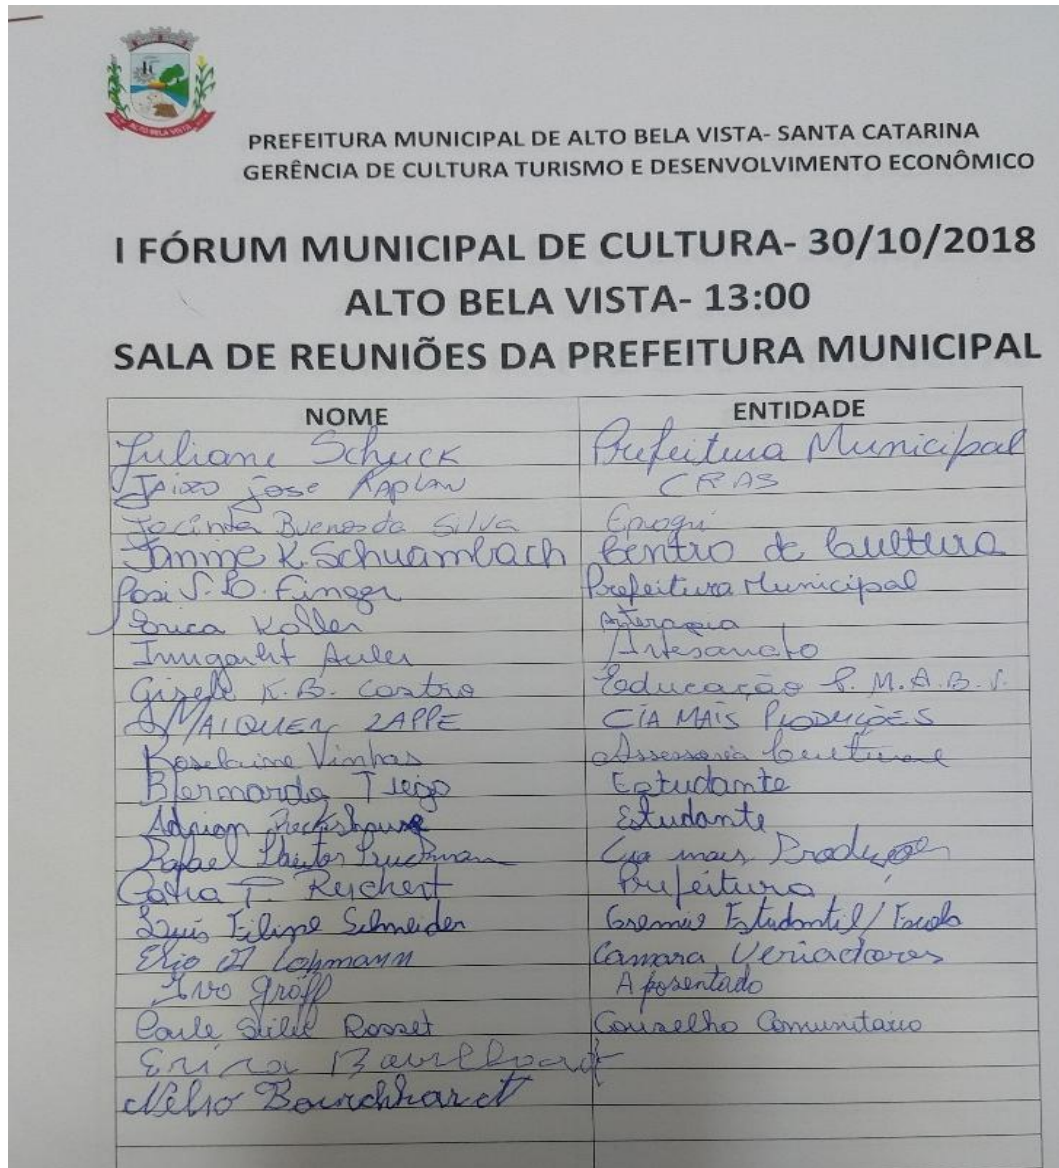 ALTO BELA VISTA
PREFEITURA MUNICIPAL DE ALTO BELA VISTA- SANTA CATARINA
GERÊNCIA DE CULTURA TURISMO E DESENVOLVIMENTO ECONÔMICO
I FÓRUM MUNICIPAL DE CULTURA- 30/10/2018
ALTO BELA VISTA- 13:00
SALA DE REUNIÕES DA PREFEITURA MUNICIPAL
NOME ENTIDADE
Juliane Schuck Prefeitura Municipal
Jose Kaplan CRAS
Jacinta Bueno da Silva Epagri
K. Schuambach Centro de Cultura
Prefeitura Municipal
Erica Koller
Auler Artesanato
Gisele K.B. Castro Educação P.M.A.B.V.
MAIQUER ZAPPE CIA MAIS PRODUÇÕES
Roselaine Vinhas Assessoria Cultural
Estudante
Adrian Estudante
Rafael Cia mais Produções
Catia T. Reichert Prefeitura
Luís Filipe Schneider Gremio Estudantil/Escola
Elio Lohmann Camara Veriadores
Ivo Gräff Aposentado
Rosset Conselho Comunitario
Erica
Nelso Bourckhardt